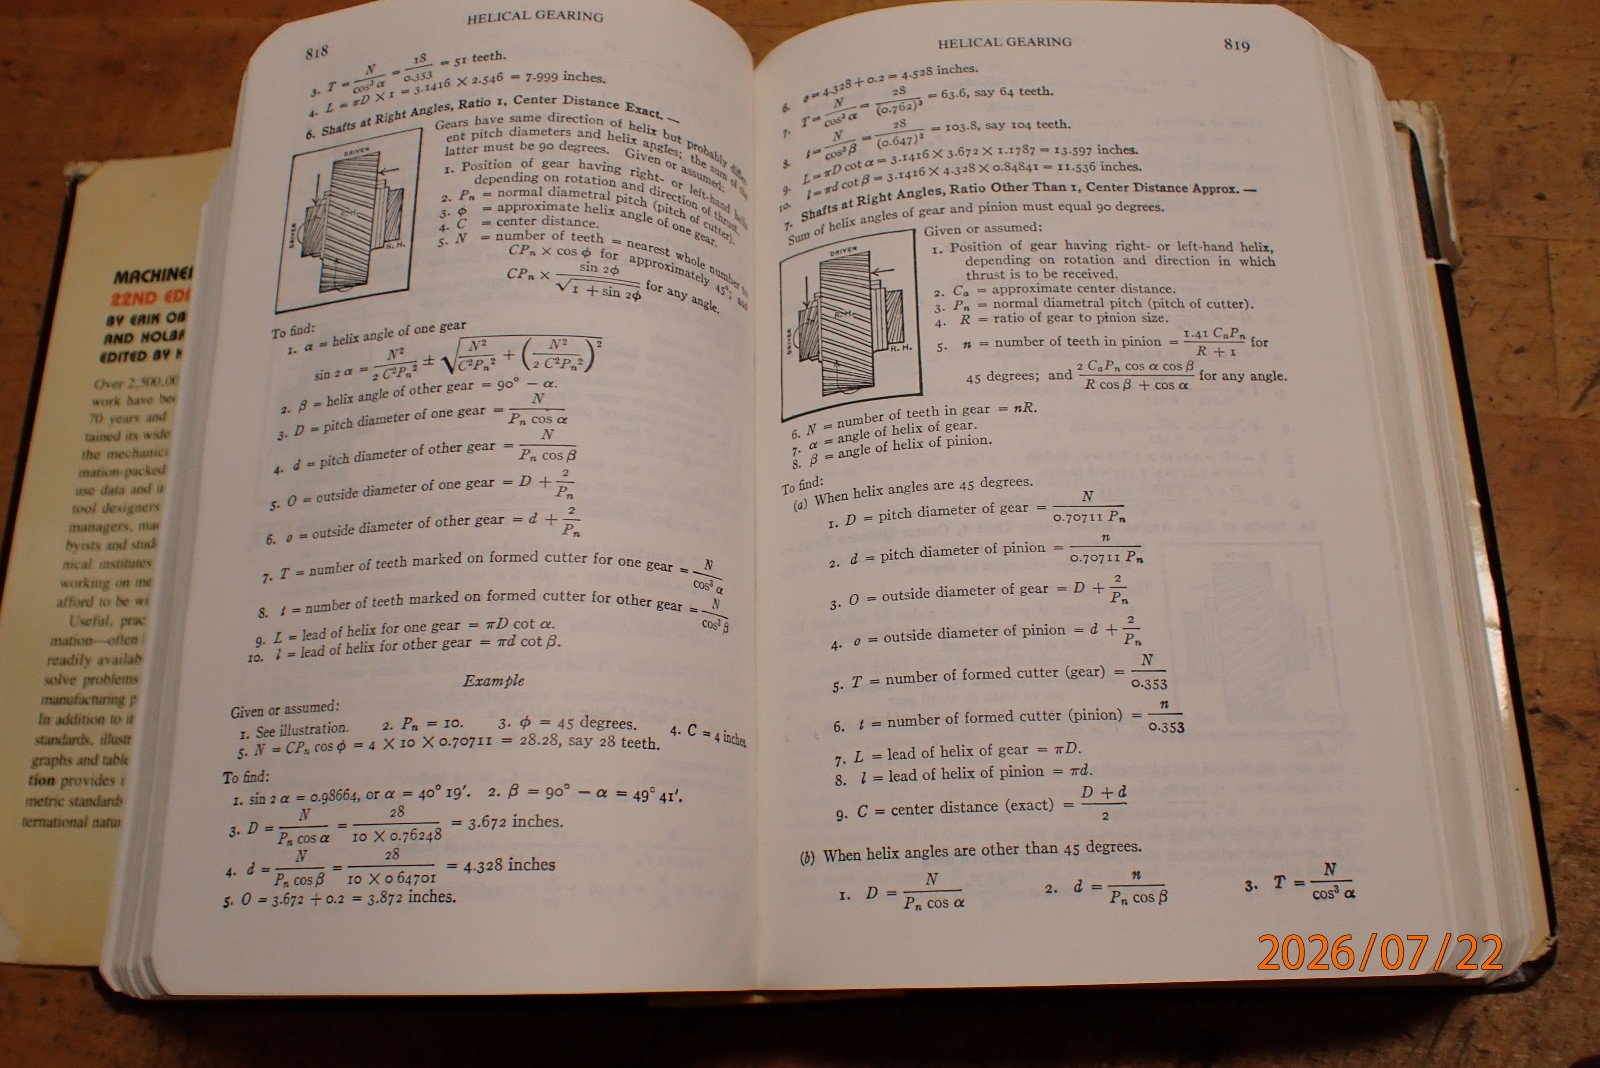 MACHINE
22ND EDI
BY ERIK OB
AND HOLB
EDITED BY
Over 2,500,00
work have bee
70 years and
tained its wide
the mechanic
mation-packed
use data and it
tool designers
managers, ma
byists and stud
nical institutes
working on me
afford to be wi
Useful, prac
mation—often
readily availab
solve problems
manufacturing p
In addition to it
standards, illust
graphs and table
tion provides i
metric standards
ternational natu
818
HELICAL GEARING
3. T = N / cos³ α = 18 / 0.353 = 51 teeth.
4. L = πD × 1 = 3.1416 × 2.546 = 7.999 inches.
6. Shafts at Right Angles, Ratio 1, Center Distance Exact. —
DRIVEN
R.H.
DRIVER
R.H.
Gears have same direction of helix but probably differ-
ent pitch diameters and helix angles; the sum of the
latter must be 90 degrees. Given or assumed:
1. Position of gear having right- or left-hand helix
depending on rotation and direction of thrust.
2. Pn = normal diametral pitch (pitch of cutter).
3. φ = approximate helix angle of one gear.
4. C = center distance.
5. N = number of teeth = nearest whole number to
CPn × cos φ for approximately 45°; and
CPn × sin 2φ / √1 + sin 2φ for any angle.
To find:
1. α = helix angle of one gear
sin 2 α = N² / 2 C²Pn² ± √ N² / C²Pn² + ( N² / 2 C²Pn² )²
2. β = helix angle of other gear = 90° − α.
3. D = pitch diameter of one gear = N / Pn cos α
4. d = pitch diameter of other gear = N / Pn cos β
5. O = outside diameter of one gear = D + 2 / Pn
6. o = outside diameter of other gear = d + 2 / Pn
7. T = number of teeth marked on formed cutter for one gear = N / cos³ α
8. t = number of teeth marked on formed cutter for other gear = N / cos³ β
9. L = lead of helix for one gear = πD cot α.
10. l = lead of helix for other gear = πd cot β.
Example
Given or assumed:
1. See illustration. 2. Pn = 10. 3. φ = 45 degrees. 4. C = 4 inches
5. N = CPn cos φ = 4 × 10 × 0.70711 = 28.28, say 28 teeth.
To find:
1. sin 2 α = 0.98664, or α = 40° 19′. 2. β = 90° − α = 49° 41′.
3. D = N / Pn cos α = 28 / 10 × 0.76248 = 3.672 inches.
4. d = N / Pn cos β = 28 / 10 × 0 64701 = 4.328 inches
5. O = 3.672 + 0.2 = 3.872 inches.
HELICAL GEARING
819
6. o = 4.328 + 0.2 = 4.528 inches.
7. T = N / cos³ α = 28 / (0.762)³ = 63.6, say 64 teeth.
8. t = N / cos³ β = 28 / (0.647)³ = 103.8, say 104 teeth.
9. L = πD cot α = 3.1416 × 3.672 × 1.1787 = 13.597 inches.
10. l = πd cot β = 3.1416 × 4.328 × 0.84841 = 11.536 inches.
7. Shafts at Right Angles, Ratio Other Than 1, Center Distance Approx. —
Sum of helix angles of gear and pinion must equal 90 degrees.
DRIVEN
R.H.
DRIVER
R.H.
Given or assumed:
1. Position of gear having right- or left-hand helix,
depending on rotation and direction in which
thrust is to be received.
2. Ca = approximate center distance.
3. Pn = normal diametral pitch (pitch of cutter).
4. R = ratio of gear to pinion size.
5. n = number of teeth in pinion = 1.41 CaPn / R + 1 for
45 degrees; and 2 CaPn cos α cos β / R cos β + cos α for any angle.
6. N = number of teeth in gear = nR.
7. α = angle of helix of gear.
8. β = angle of helix of pinion.
To find:
(a) When helix angles are 45 degrees.
1. D = pitch diameter of gear = N / 0.70711 Pn
2. d = pitch diameter of pinion = n / 0.70711 Pn
3. O = outside diameter of gear = D + 2 / Pn
4. o = outside diameter of pinion = d + 2 / Pn
5. T = number of formed cutter (gear) = N / 0.353
6. t = number of formed cutter (pinion) = n / 0.353
7. L = lead of helix of gear = πD.
8. l = lead of helix of pinion = πd.
9. C = center distance (exact) = D + d / 2
(b) When helix angles are other than 45 degrees.
1. D = N / Pn cos α 2. d = n / Pn cos β 3. T = N / cos³ α
2026/07/22